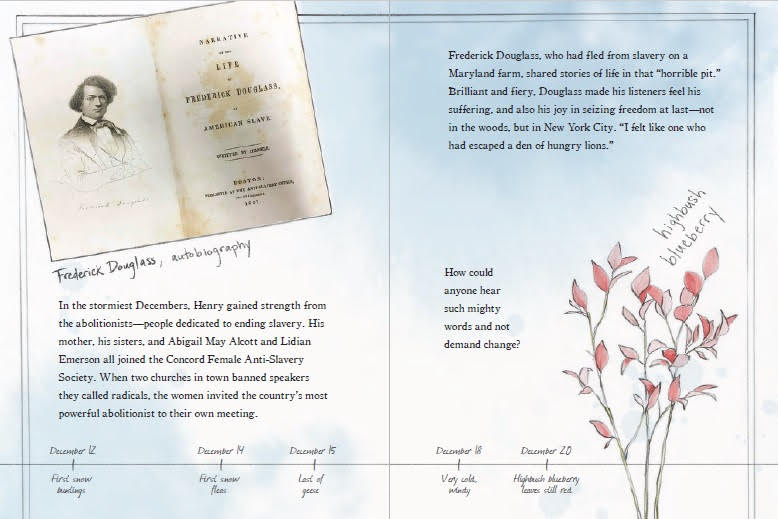 NARRATIVE
OF THE
LIFE
OF
FREDERICK DOUGLASS,
AN
AMERICAN SLAVE.
WRITTEN BY HIMSELF.
BOSTON:
PUBLISHED AT THE ANTI-SLAVERY OFFICE,
Frederick Douglass
Frederick Douglass, autobiography
In the stormiest Decembers, Henry gained strength from
the abolitionists—people dedicated to ending slavery. His
mother, his sisters, and Abigail May Alcott and Lidian
Emerson all joined the Concord Female Anti-Slavery
Society. When two churches in town banned speakers
they called radicals, the women invited the country's most
powerful abolitionist to their own meeting.
December 12
First snow
buntings
December 14
First snow
fleas
December 15
Last of
geese
Frederick Douglass, who had fled from slavery on a
Maryland farm, shared stories of life in that “horrible pit.”
Brilliant and fiery, Douglass made his listeners feel his
suffering, and also his joy in seizing freedom at last—not
in the woods, but in New York City. “I felt like one who
had escaped a den of hungry lions.”
highbush
blueberry
How could
anyone hear
such mighty
words and not
demand change?
December 18
Very cold,
windy
December 20
Highbush blueberry
leaves still red